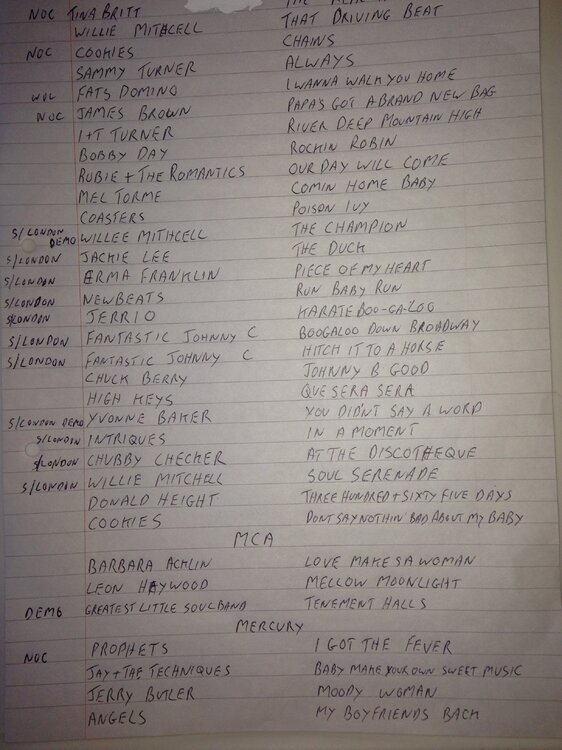 NOC TINA BRITT
WILLIE MITHCELL THAT DRIVING BEAT
NOC COOKIES CHAINS
SAMMY TURNER ALWAYS
WOC FATS DOMINO I WANNA WALK YOU HOME
NOC JAMES BROWN PAPAS GOT A BRAND NEW BAG
I+T TURNER RIVER DEEP MOUNTAIN HIGH
BOBBY DAY ROCKIN ROBIN
RUBIE + THE ROMANTICS OUR DAY WILL COME
MEL TORME COMIN HOME BABY
COASTERS POISON IVY
S/LONDON DEMO WILLEE MITHCELL THE CHAMPION
S/LONDON JACKIE LEE THE DUCK
S/LONDON ERMA FRANKLIN PIECE OF MY HEART
S/LONDON NEWBEATS RUN BABY RUN
S/LONDON JERRIO KARATE BOO-GA-LOO
S/LONDON FANTASTIC JOHNNY C BOOGALOO DOWN BROADWAY
S/LONDON FANTASTIC JOHNNY C HITCH IT TO A HORSE
CHUCK BERRY JOHNNY B GOOD
HIGH KEYS QUE SERA SERA
S/LONDON DEMO YVONNE BAKER YOU DIDN'T SAY A WORD
S/LONDON INTRIQUES IN A MOMENT
S/LONDON CHUBBY CHECKER AT THE DISCOTHEQUE
S/LONDON WILLIE MITCHELL SOUL SERENADE
DONALD HEIGHT THREE HUNDRED + SIXTY FIVE DAYS
COOKIES DONT SAY NOTHIN' BAD ABOUT MY BABY
MCA
BARBARA ACKLIN LOVE MAKES A WOMAN
LEON HAYWOOD MELLOW MOONLIGHT
DEMO GREATEST LITTLE SOUL BAND TENEMENT HALLS
MERCURY
NOC PROPHETS I GOT THE FEVER
JAY + THE TECHNIQUES BABY MAKE YOUR OWN SWEET MUSIC
JERRY BUTLER MOODY WOMAN
ANGELS MY BOYFRIENDS BACK